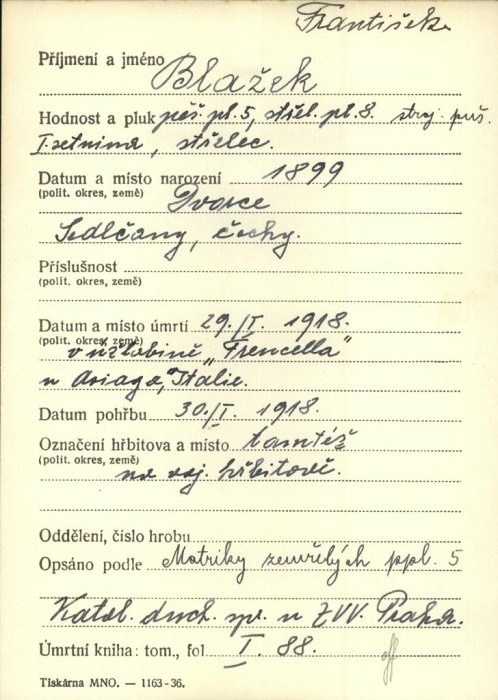 František
Příjmení a jméno Blažek
Hodnost a pluk pěš. pl. 5, střel. pl. 8. stroj. puš.
I. setnina, střelec.
Datum a místo narození 1899
(polit. okres, země) Dvorce
Sedlčany, Čechy.
Příslušnost
(polit. okres, země)
Datum a místo úmrtí 29./I. 1918.
(polit. okres, země)
v úžlabině „Frencella"
u Asiago, Italie.
Datum pohřbu 30./I. 1918.
Označení hřbitova a místo tamtéž
(polit. okres, země) na voj. hřbitově.
Oddělení, číslo hrobu
Opsáno podle Matriky zemřelých ppl. 5
Katol. duch. spr. u ZVV. Praha.
Úmrtní kniha: tom., fol I. 88.
Tiskárna MNO. — 1163-36.